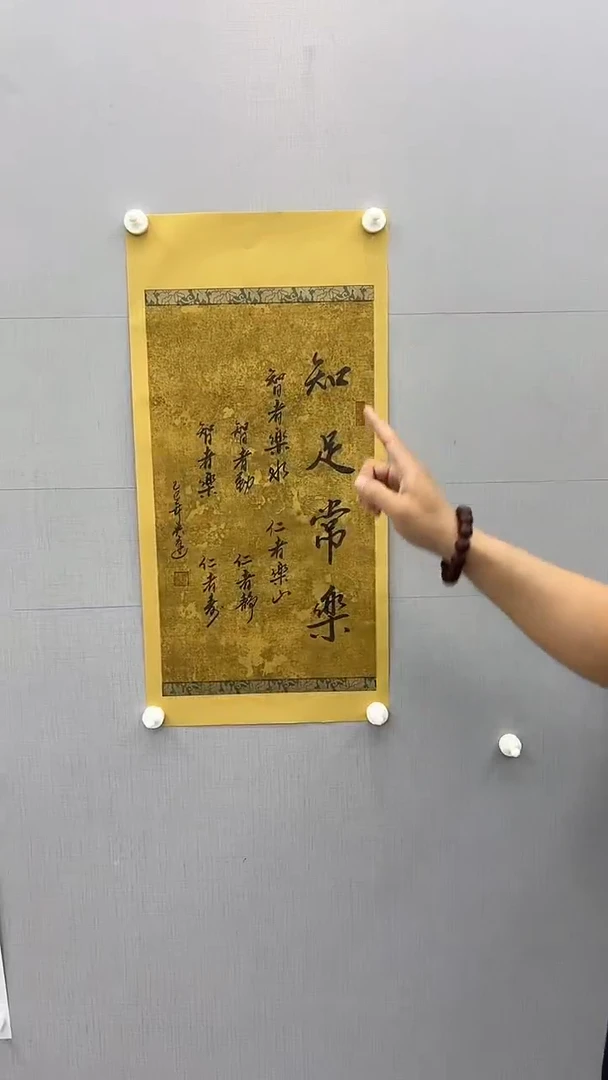 知足常樂
智者樂水 仁者樂山
智者動 仁者靜
智者樂 仁者壽